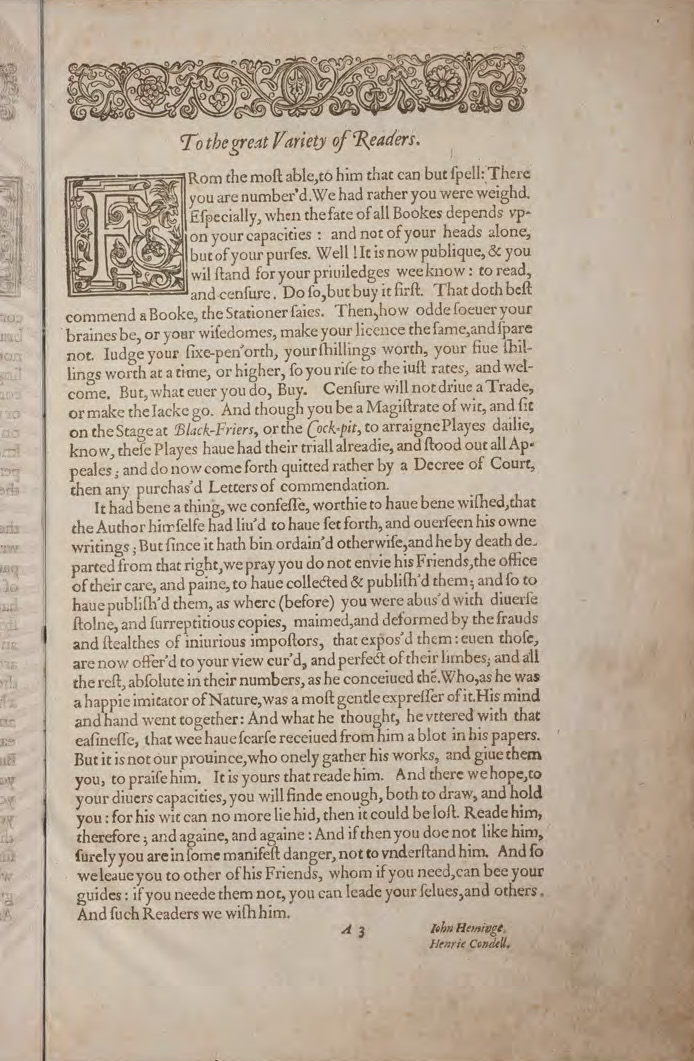 To the great Variety of Readers.
FRom the moſt able, to him that can but ſpell: There
you are number'd. We had rather you were weighd.
Eſpecially, when the fate of all Bookes depends vp-
on your capacities : and not of your heads alone,
but of your purſes. Well ! It is now publique, & you
wil ſtand for your priuiledges wee know : to read,
and cenſure. Do ſo, but buy it firſt. That doth beſt
commend a Booke, the Stationer ſaies. Then, how odde ſoeuer your
braines be, or your wiſedomes, make your licence the ſame, and ſpare
not. Iudge your ſixe-pen'orth, your ſhillings worth, your fiue ſhil-
lings worth at a time, or higher, ſo you riſe to the iuſt rates, and wel-
come. But, what euer you do, Buy. Cenſure will not driue a Trade,
or make the Iacke go. And though you be a Magiſtrate of wit, and ſit
on the Stage at Black-Friers, or the Cock-pit, to arraigne Playes dailie,
know, theſe Playes haue had their triall alreadie, and ſtood out all Ap-
peales ; and do now come forth quitted rather by a Decree of Court,
then any purchas'd Letters of commendation.
It had bene a thing, we confeſſe, worthie to haue bene wiſhed, that
the Author himſelfe had liu'd to haue ſet forth, and ouerſeen his owne
writings ; But ſince it hath bin ordain'd otherwiſe, and he by death de-
parted from that right, we pray you do not envie his Friends, the office
of their care, and paine, to haue collected & publiſh'd them ; and ſo to
haue publiſh'd them, as where (before) you were abus'd with diuerſe
ſtolne, and ſurreptitious copies, maimed, and deformed by the frauds
and ſtealthes of iniurious impoſtors, that expos'd them : euen thoſe,
are now offer'd to your view cur'd, and perfect of their limbes ; and all
the reſt, abſolute in their numbers, as he conceiued thē. Who, as he was
a happie imitator of Nature, was a moſt gentle expreſſer of it. His mind
and hand went together: And what he thought, he vttered with that
eaſineſſe, that wee haue ſcarſe receiued from him a blot in his papers.
But it is not our prouince, who onely gather his works, and giue them
you, to praiſe him. It is yours that reade him. And there we hope, to
your diuers capacities, you will finde enough, both to draw, and hold
you : for his wit can no more lie hid, then it could be loſt. Reade him,
therefore ; and againe, and againe : And if then you doe not like him,
ſurely you are in ſome manifeſt danger, not to vnderſtand him. And ſo
we leaue you to other of his Friends, whom if you need, can bee your
guides : if you neede them not, you can leade your ſelues, and others.
And ſuch Readers we wiſh him.
A 3
Iohn Heminge.
Henrie Condell.